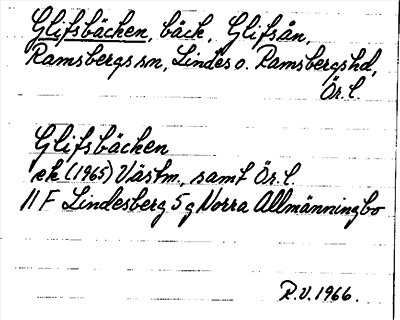 Glifsbäcken, bäck, Glifsån,
Ramsbergs sn, Lindes o. Ramsbergs hd,
Ör. l.
Glifsbäcken
ek (1965) Västm., samt Ör. l.
11 F Lindesberg 5 g Norra Allmänningbo
R.V. 1966.